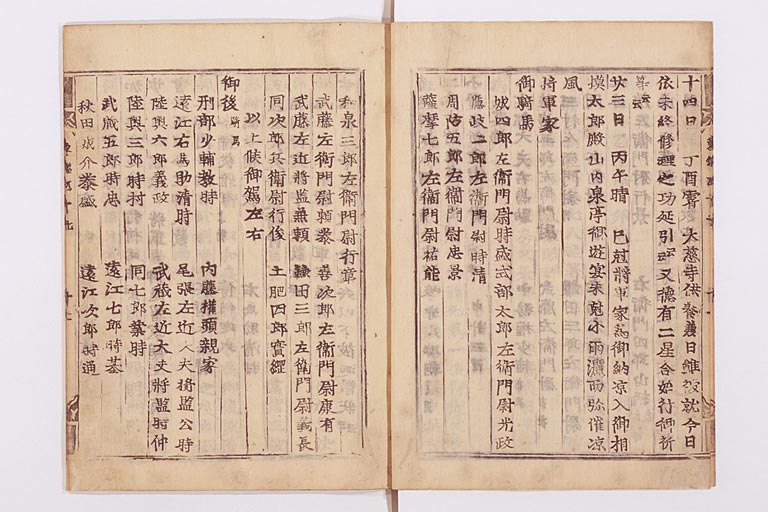 十四日 丁酉霽 大慈寺供養義日雖被就今日
依未終修理之功延引云云又德有二星合始行御祈
等云云
廿三日 丙午晴 巳尅將軍家為御納凉入御相
摸太郎殿山内泉亭御遊宴未尅小雨灑而弥催凉
風
將軍家
御騎馬
城四郎左衛門尉時盛 式部太郎左衛門尉光政
隱岐二郎左衛門尉時清
周防五郎左衛門尉忠景
薩摩七郎左衛門尉祐能
和泉三郎左衛門尉行章
武藤左衛門尉頼泰 善次郎左衛門尉康有
武藤左近將監兼頼 鎌田三郎左衛門尉義長
同次郎兵衛尉行俊 土肥四郎實經
以上候御駕左右
御後 騎馬
刑部少輔教時 内藤權頭親家
遠江右馬助清時 尾張左近大夫將監公時
陸奥六郎義政 武藏左近大夫將監時仲
陸奥三郎時村 同七郎業時
武藏五郎時忠 遠江七郎時基
秋田城介泰盛 遠江次郎時通